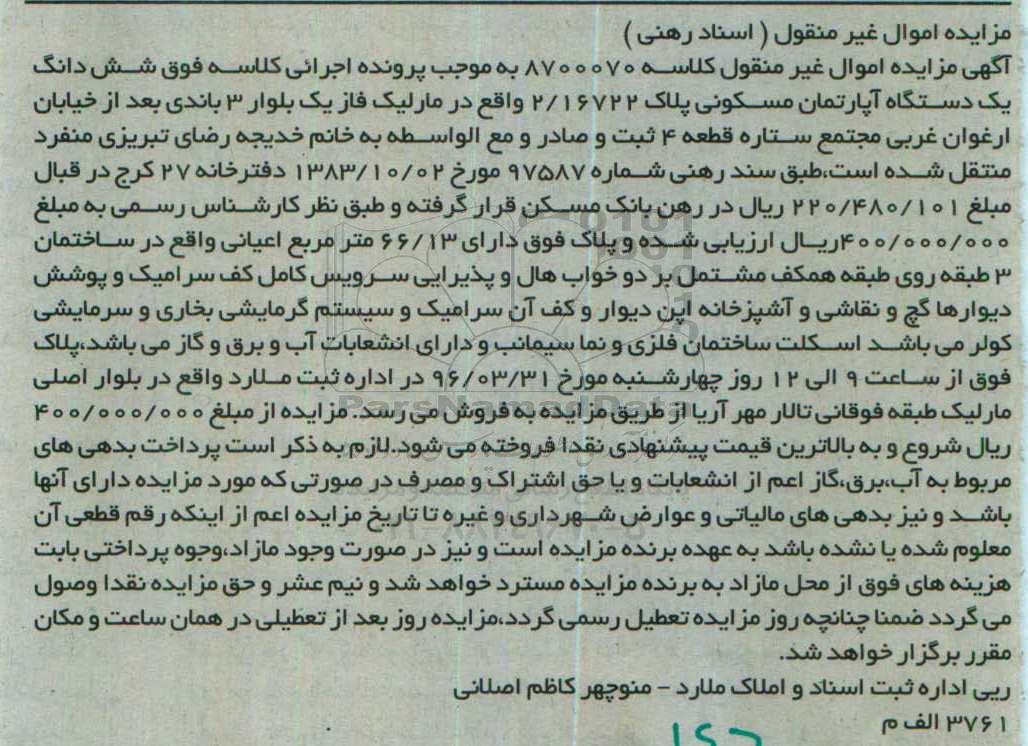 مزایده اموال غیر منقول ( اسناد رهنی )
آگهی مزایده اموال غیر منقول کلاسه ۸۷۰۰۰۷۰ به موجب پرونده اجرائی کلاسه فوق شش دانگ
یک دستگاه آپارتمان مسکونی پلاک ۲/۱۶۷۲۲ واقع در مارلیک فاز یک بلوار ۳ باندی بعد از خیابان
ارغوان غربی مجتمع ستاره قطعه ۴ ثبت و صادر و مع الواسطه به خانم خدیجه رضای تبریزی منفرد
منتقل شده است،طبق سند رهنی شماره ۹۷۵۸۷ مورخ ۱۳۸۳/۱۰/۰۲ دفترخانه ۲۷ کرج در قبال
مبلغ ۲۲۰/۴۸۰/۱۰۱ ریال در رهن بانک مسکن قرار گرفته و طبق نظر کارشناس رسمی به مبلغ
۴۰۰/۰۰۰/۰۰۰ریال ارزیابی شده و پلاک فوق دارای ۶۶/۱۳ متر مربع اعیانی واقع در ساختمان
۳ طبقه روی طبقه همکف مشتمل بر دو خواب هال و پذیرایی سرویس کامل کف سرامیک و پوشش
دیوارها گچ و نقاشی و آشپزخانه اپن دیوار و کف آن سرامیک و سیستم گرمایشی بخاری و سرمایشی
کولر می باشد اسکلت ساختمان فلزی و نما سیمانب و دارای انشعابات آب و برق و گاز می باشد،پلاک
فوق از ساعت ۹ الی ۱۲ روز چهارشنبه مورخ ۹۶/۰۳/۳۱ در اداره ثبت ملارد واقع در بلوار اصلی
مارلیک طبقه فوقانی تالار مهر آریا از طریق مزایده به فروش می رسد. مزایده از مبلغ ۴۰۰/۰۰۰/۰۰۰
ریال شروع و به بالاترین قیمت پیشنهادی نقدا فروخته می شود.لازم به ذکر است پرداخت بدهی های
مربوط به آب،برق،گاز اعم از انشعابات و یا حق اشتراک و مصرف در صورتی که مورد مزایده دارای آنها
باشد و نیز بدهی های مالیاتی و عوارض شهرداری و غیره تا تاریخ مزایده اعم از اینکه رقم قطعی آن
معلوم شده یا نشده باشد به عهده برنده مزایده است و نیز در صورت وجود مازاد،وجوه پرداختی بابت
هزینه های فوق از محل مازاد به برنده مزایده مسترد خواهد شد و نیم عشر و حق مزایده نقدا وصول
می گردد ضمنا چنانچه روز مزایده تعطیل رسمی گردد،مزایده روز بعد از تعطیلی در همان ساعت و مکان
مقرر برگزار خواهد شد.
ریی اداره ثبت اسناد و املاک ملارد - منوچهر کاظم اصلانی
۳۷۶۱ الف م
ParsNamadData